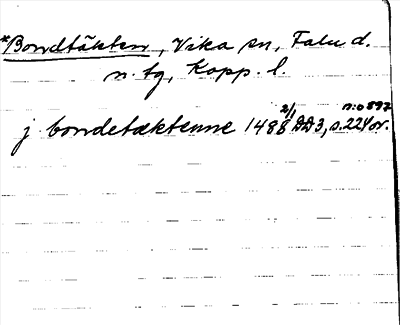 *Bondtäkten, Vika sn, Falu d.
n. tg, Kopp. l.
j bondetæktenne 1488 2/1 DD3, s. 224 or. n:o 897